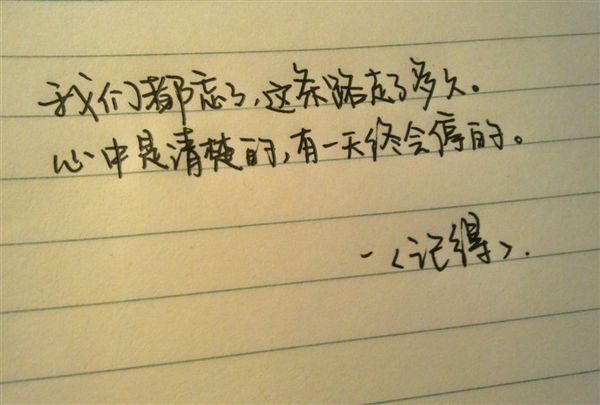 我们都忘了,这条路走了多久。
心中是清楚的,有一天终会停的。
-<记得>.